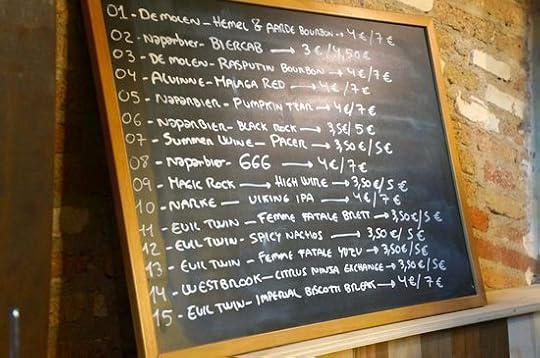 01 - DE MOLEN - HEMEL & AARDE BOURBON → 4€/7€
02 - NAPARBIER - BIERCAB → 3€/4,50€
03 - DE MOLEN - RASPUTIN BOURBON → 4€/7€
04 - ALVINNE - MALAGA RED → 4€/7€
05 - NAPARBIER - PUMPKIN TZAR → 4€/7€
06 - NAPARBIER - BLACK ROCK → 3,5€/5€
07 - SUMMER WINE - PACER → 3,50€/5€
08 - NAPARBIER - 666 → 4€/7€
09 - MAGIC ROCK → HIGH WIRE → 3,50€/5€
10 - NARKE - VIKING IPA → 4€/7€
11 - EVIL TWIN - FEMME FATALE BRETT → 3,50€/5€
12 - EVIL TWIN - SPICY NACHOS → 3,50€/5€
13 - EVIL TWIN - FEMME FATALE YUZU → 3,50€/5€
14 - WESTBROOK - CITRUS NINJA EXCHANGE → 3,50€/5€
15 - EVIL TWIN - IMPERIAL BISCOTTI BREAK → 4€/7€